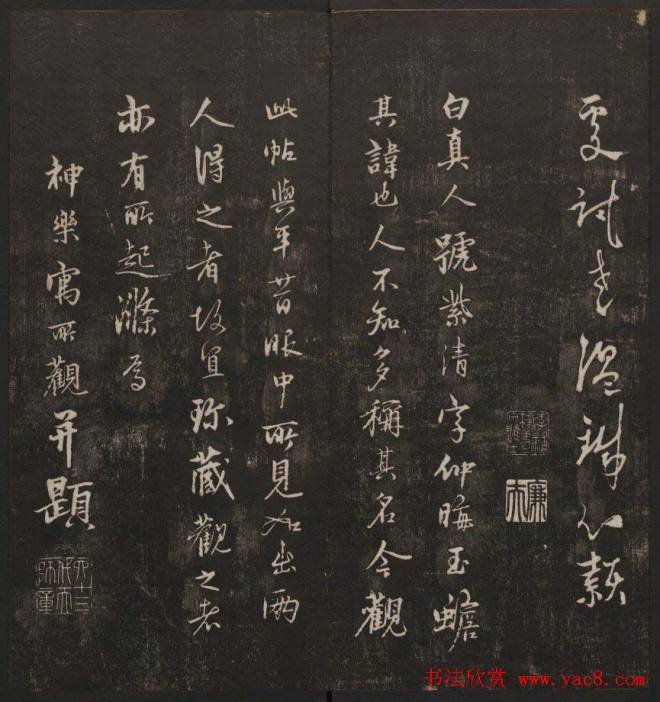 試老
廉夫
白真人號紫清字仲晦玉蟾
其諱也人不知多稱其名今觀
此帖與平昔眼中所見如出兩
人得之者故宜珍藏觀之者
亦有所起滌焉
神樂寓所觀并題
四十三代天師章
书法欣赏 www.yac8.com